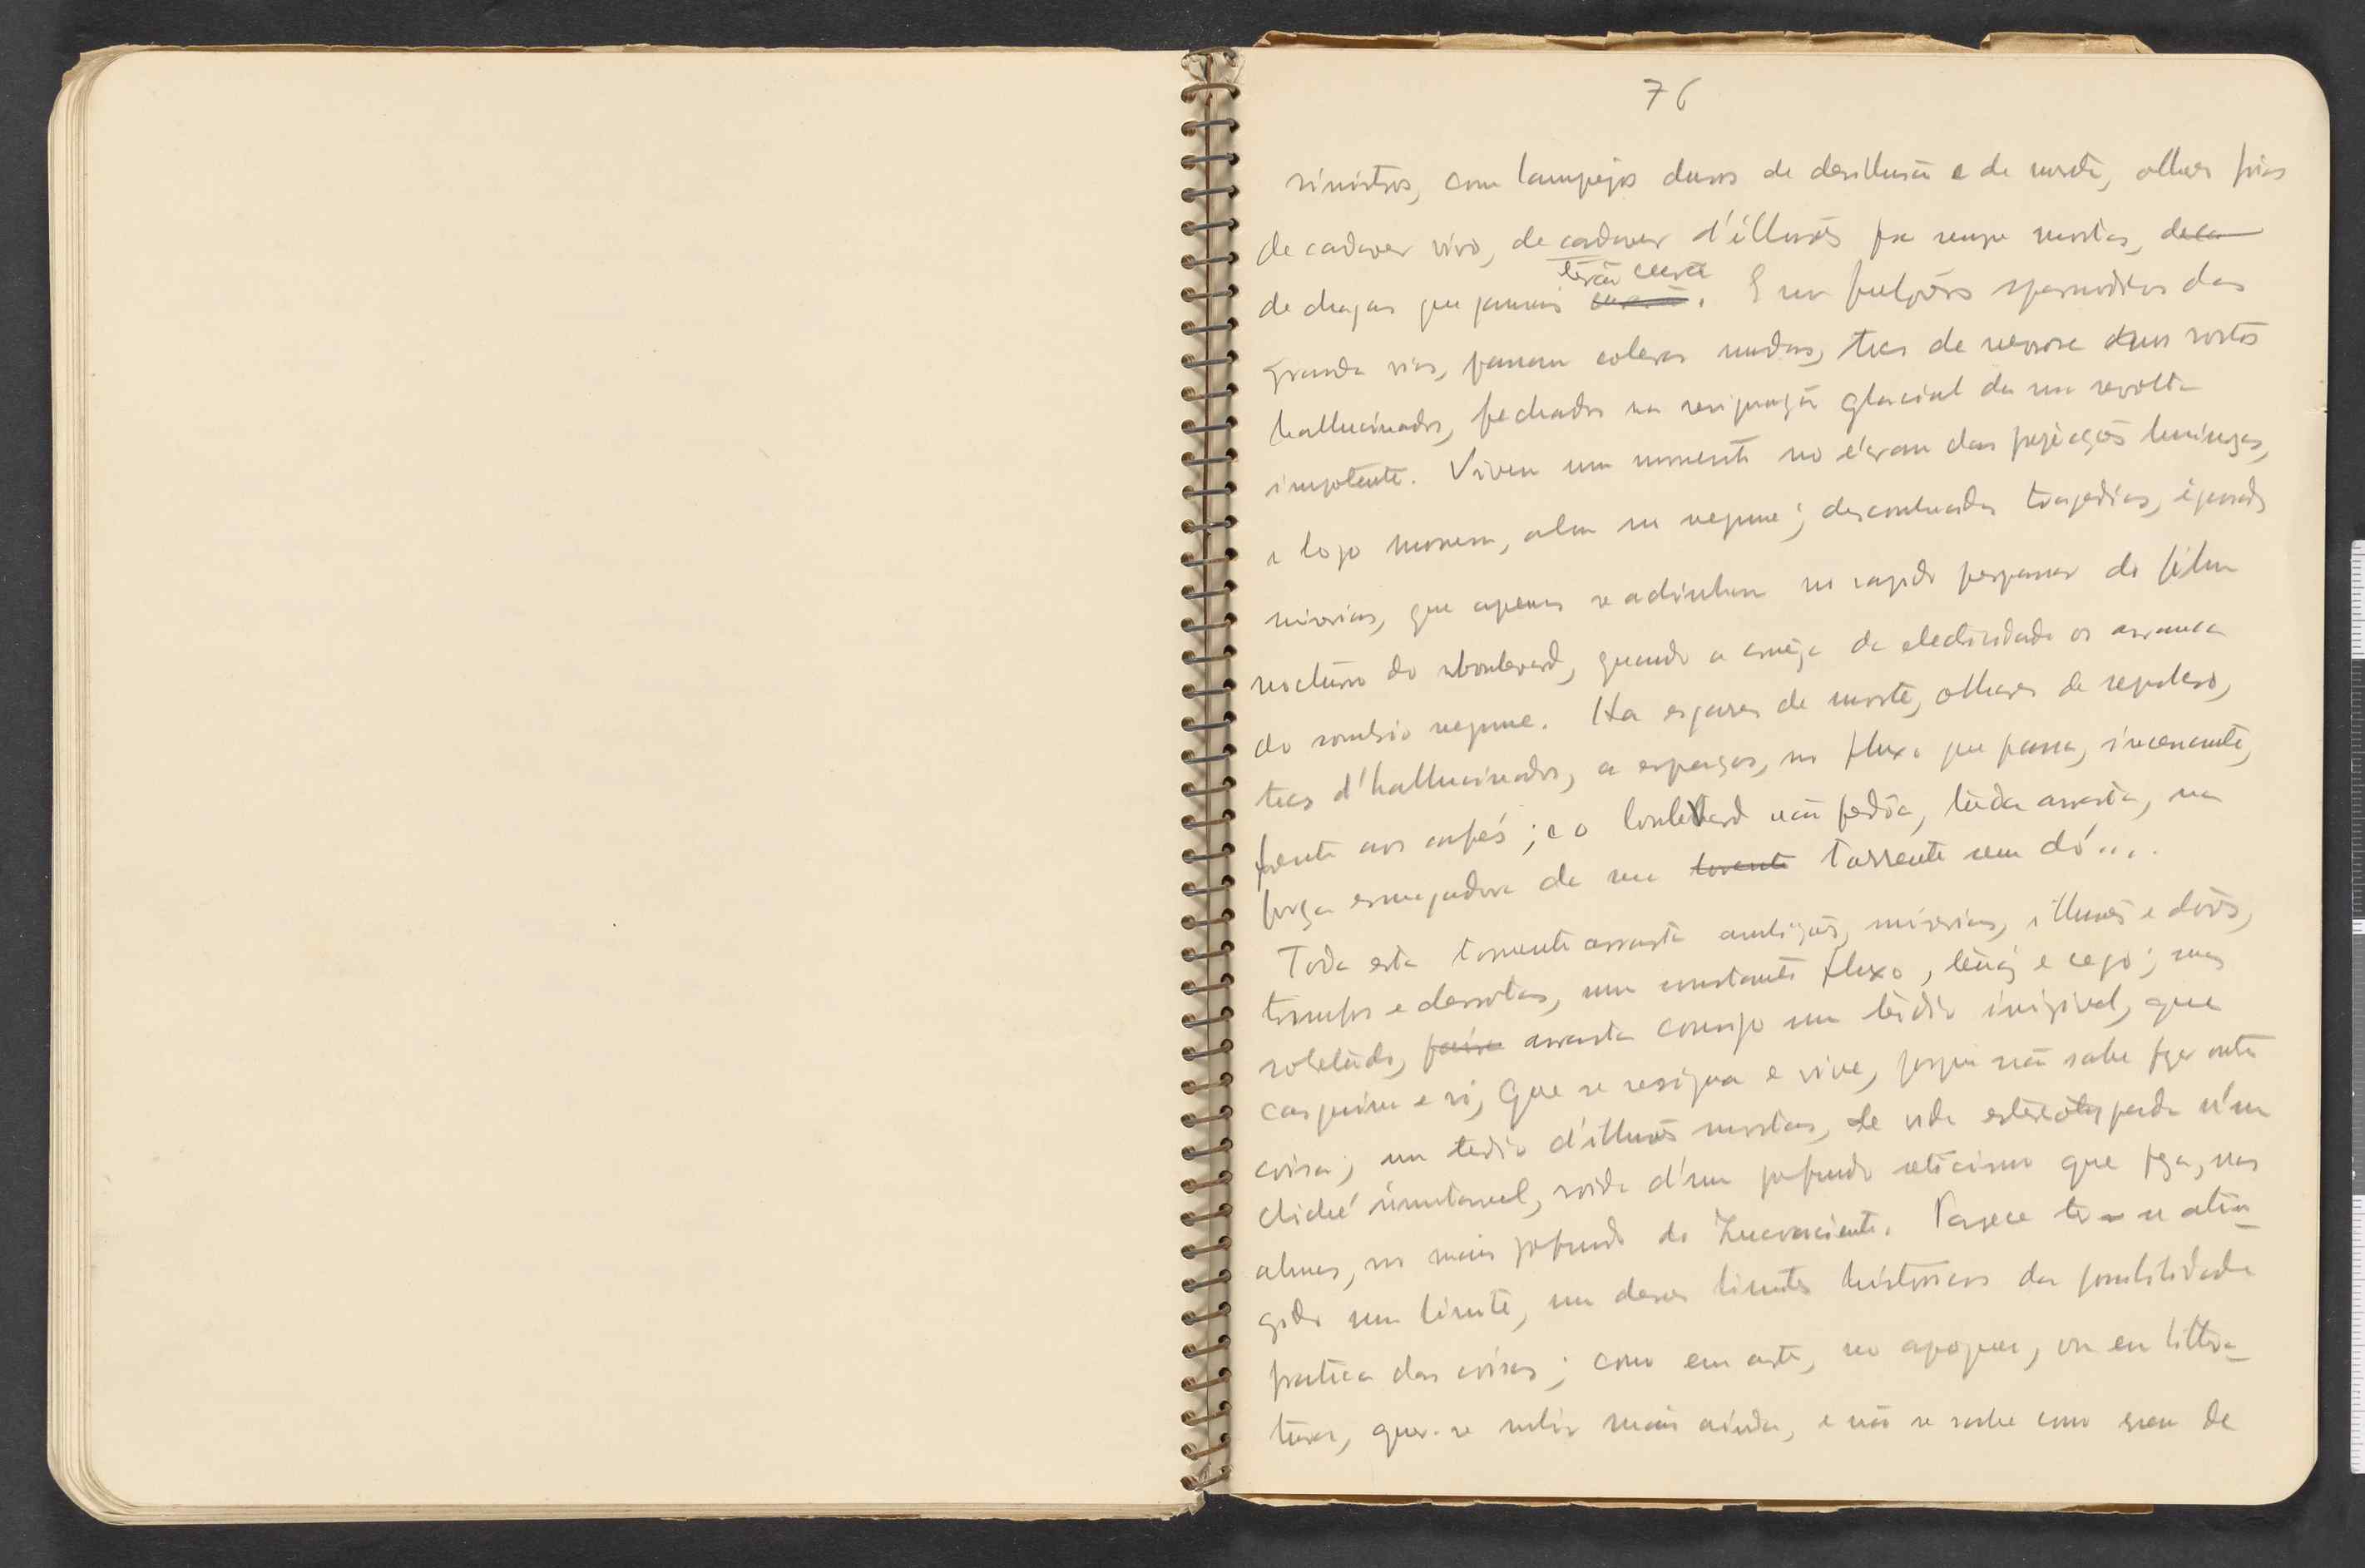 76
sinistros, com lampejos duros de desillusão e de morte, olhares frios
de cadaver vivo, de cadaver d'illusões pra sempre mortas, de ca
de chagas que jamais terão cura. E nos fulgores espasmodicos das
grandes vias, passam coleras mudas, tics de nevrose duns rostos
hallucinados, fechados na resignação glacial da sua revolta
impotente. Vivem um momento no écran das projecções luminosas,
e logo morrem, alem na negrume; desconhecidas tragedias, ignoradas
miserias, que apenas se adivinham no rapido perpassar do film
nocturno do boulevard, quando a da electricidade os arranca
do sombrio negrume. Ha esgares de morte, olhares de sepulcro,
tics d'hallucinados, a espaços, no fluxo que passa, incessante,
frente aos cafés; e o boulevard não perdôa, tudo arrasta, na
força esmagadora da sua torrente torrente sem dó....
Toda esta torrente arrasta ambições, miserias, illusões e dôres,
triumfos e derrotas, num constante fluxo, tenaz e cego; mas
sobretudo, arrasta comsigo um tédio invizivel, que
casquina e ri, que se resigna e vive, porque não sabe fazer outra
coisa; um tedio d'illusões mortas, de vida estereotypada n'um
cliché immutavel, roida d'um profundo scticismo que jaz, nas
almas, no mais profundo do Inconsciente. Parece ter-se atin-
gido um limite, um desses limites historicos da possibilidade
pratica das coisas; como em arte, no apogeu, ou em littera-
tura, quer-se subir mais ainda, e não se sabe como de